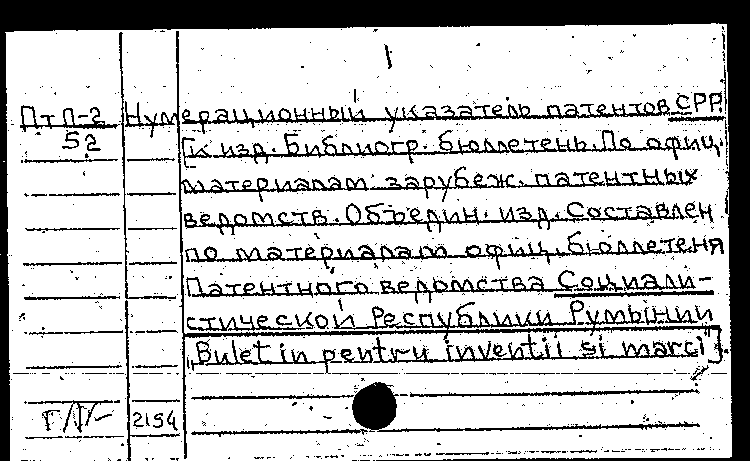 1
ПтП-2 Нумерационный указатель патентов СРР
52 [к изд. Библиогр. бюллетень. По офиц.
материалам зарубеж. патентных
ведомств. Объедин. изд. Составлен
по материалам офиц. бюллетеня
Патентного ведомства Социали-
стической Республики Румынии
„Buletin pentru inventii si marci"].
2154